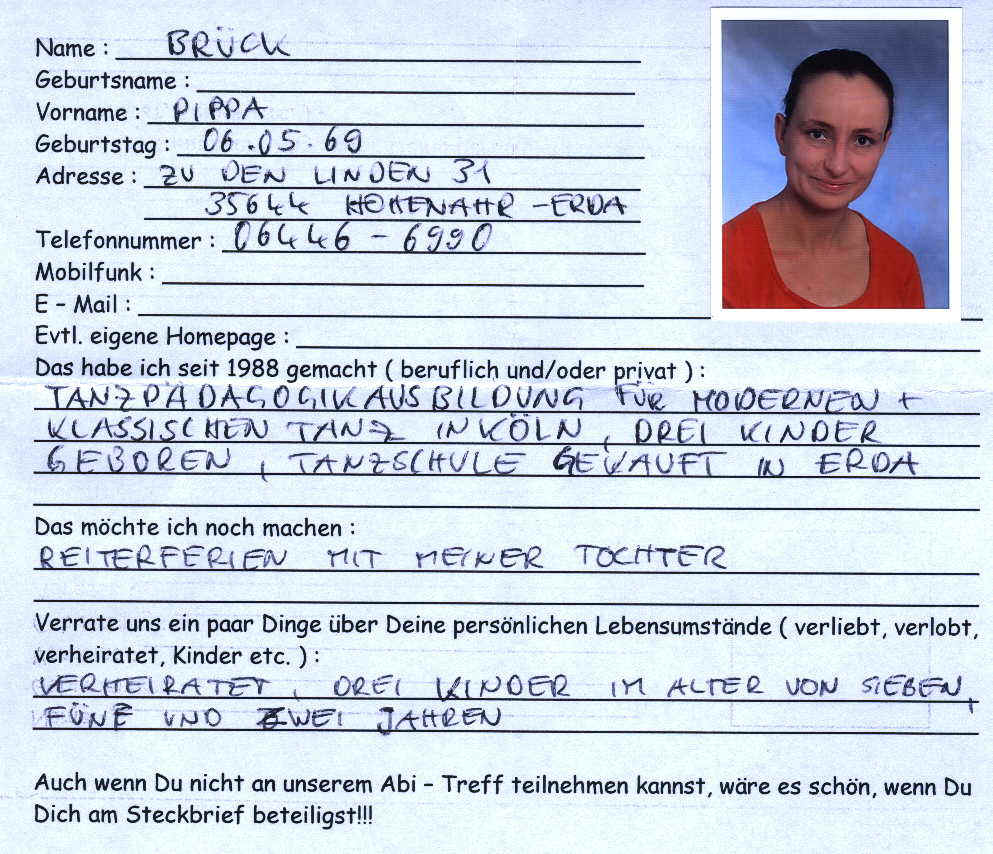 Name : BRÜCK
Geburtsname :
Vorname : PIPPA
Geburtstag : 06.05.69
Adresse : ZU DEN LINDEN 31
35644 HOHENAHR-ERDA
Telefonnummer : 06446 - 6990
Mobilfunk :
E - Mail :
Evtl. eigene Homepage :
Das habe ich seit 1988 gemacht ( beruflich und/oder privat ) :
TANZPÄDAGOGIKAUSBILDUNG FÜR MODERNEN +
KLASSISCHEN TANZ IN KÖLN, DREI KINDER
GEBOREN, TANZSCHULE GEKAUFT IN ERDA
Das möchte ich noch machen :
REITERFERIEN MIT MEINER TOCHTER
Verrate uns ein paar Dinge über Deine persönlichen Lebensumstände ( verliebt, verlobt,
verheiratet, Kinder etc. ) :
VERHEIRATET, DREI KINDER IM ALTER VON SIEBEN,
FÜNF UND ZWEI JAHREN
Auch wenn Du nicht an unserem Abi – Treff teilnehmen kannst, wäre es schön, wenn Du
Dich am Steckbrief beteiligst!!!